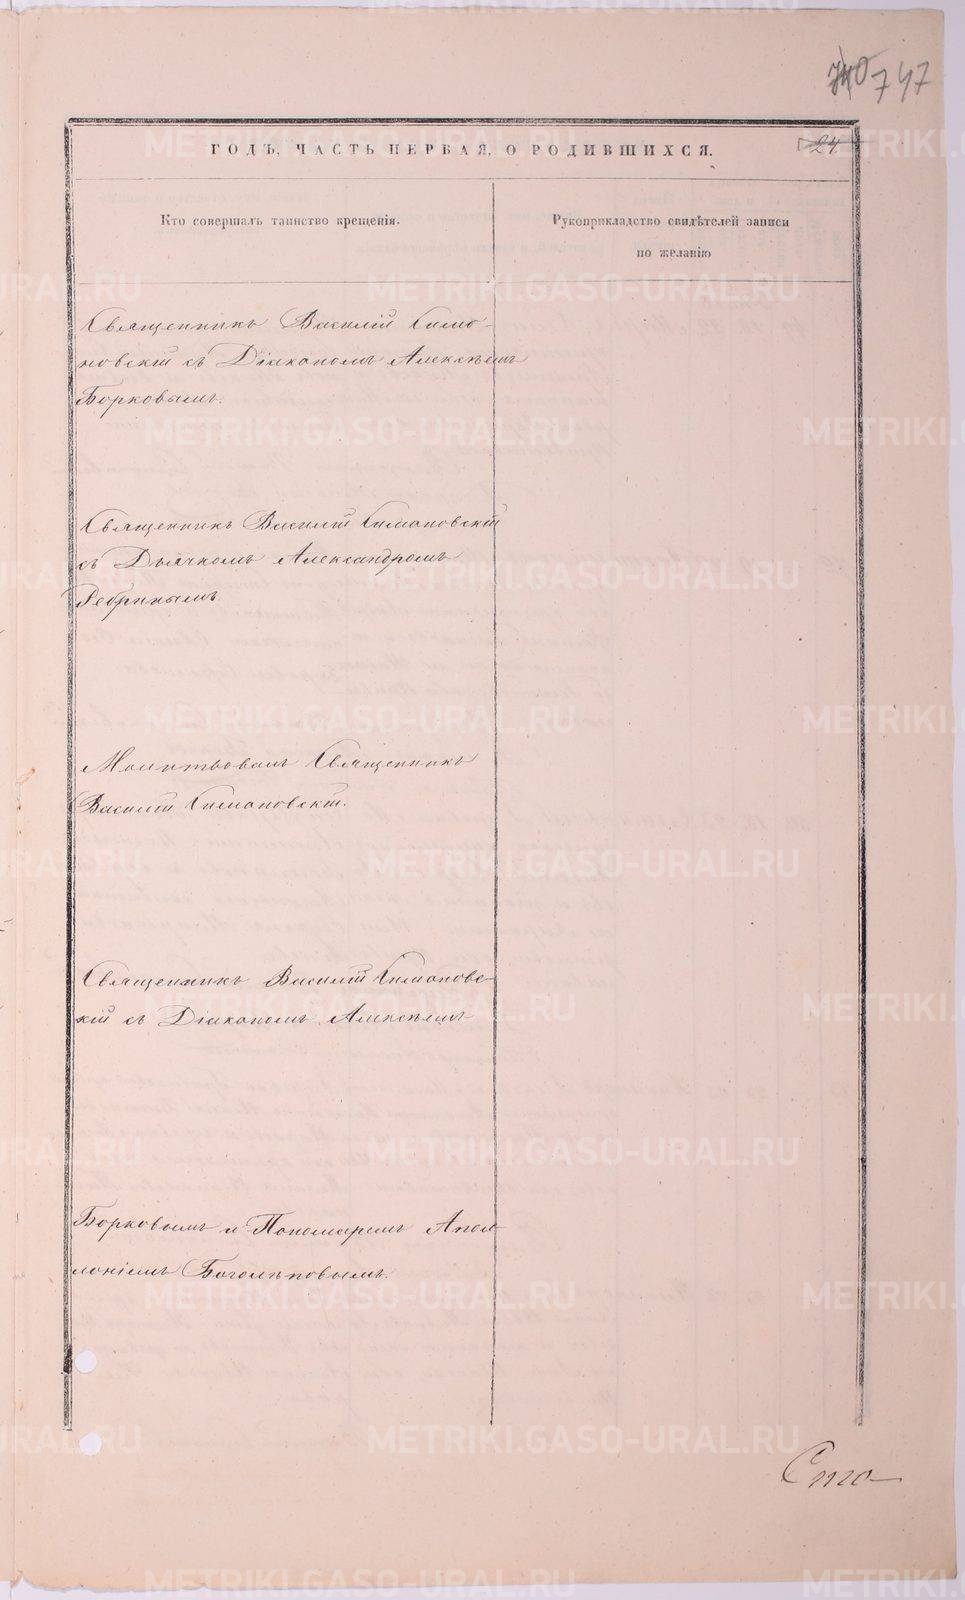 740 747
ГОДЪ, ЧАСТЬ ПЕРВАЯ, О РОДИВШИХСЯ.
24.
Кто совершалъ таинство крещенія.
Рукоприкладство свидѣтелей записи
по желанію
Священникъ Василій Симо-
новскій съ Діакономъ Алексѣемъ
Борковымъ.
Священникъ Василій Симановскій
съ Дьячкомъ Александромъ
Ребринымъ.
Молитвовалъ Священникъ
Василій Симановскій.
Священникъ Василій Симановс-
кій съ Діакономъ Алексѣемъ
Борковымъ и Пономаремъ Апол-
лоніемъ Боголѣповымъ.
METRIKI.GASO-URAL.RU